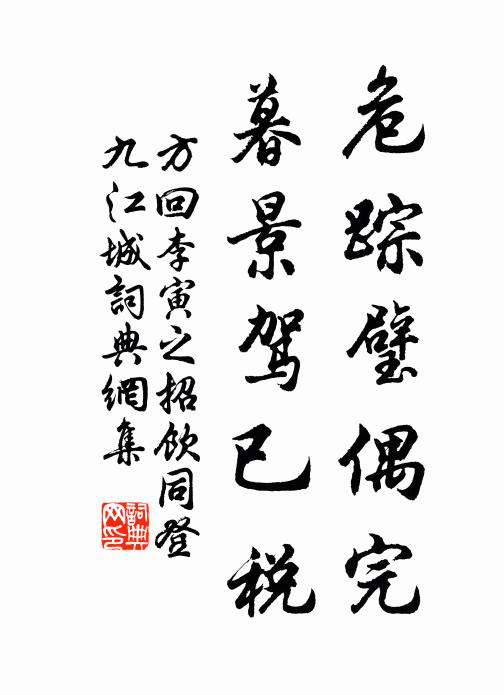 危踪璧偶完
暮景驾已税
方回李寅之招饮同登
九江城詞典網集
詞典
网印